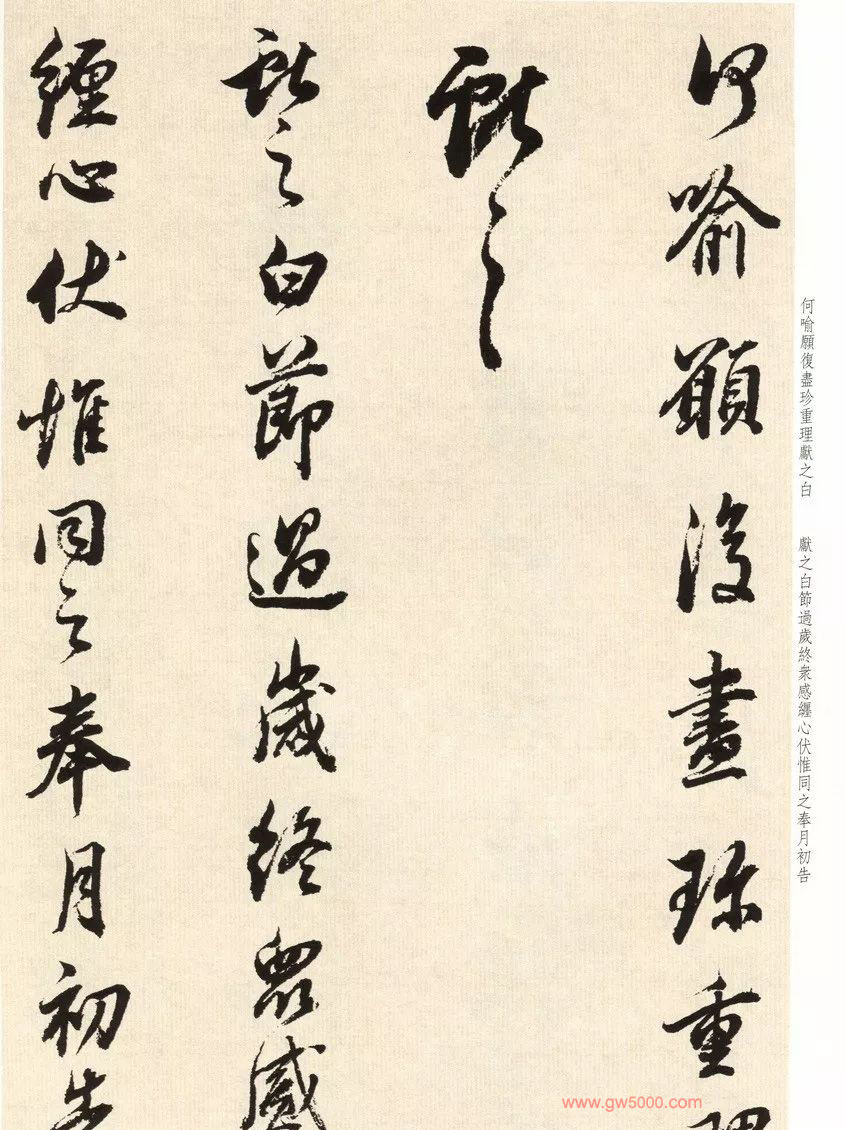 何喻願復盡珍重理
獻之
獻之白節過歲終衆感
纏心伏惟同之奉月初告
何喻願復盡珍重理獻之白
獻之白節過歲終衆感纏心伏惟同之奉月初告
www.gw5000.com